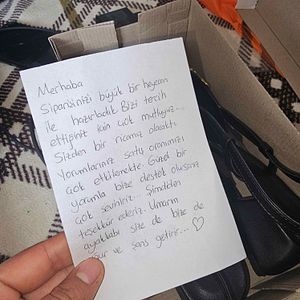 Merhaba
Siparişinizi büyük bir heyecan
ile hazırladık Bizi tercih
ettiğiniz için çok mutluyuz...
Sizden bir ricamız olacaktı
Yorumlarınız satış oranımızı
çok etkilemekte. Güzel bir
yorumla bize destek olursanız
çok seviniriz... Şimdiden
teşekkür ederiz. Umarım
ayakkabı size de bize de
uğur ve şans getirir... ♡